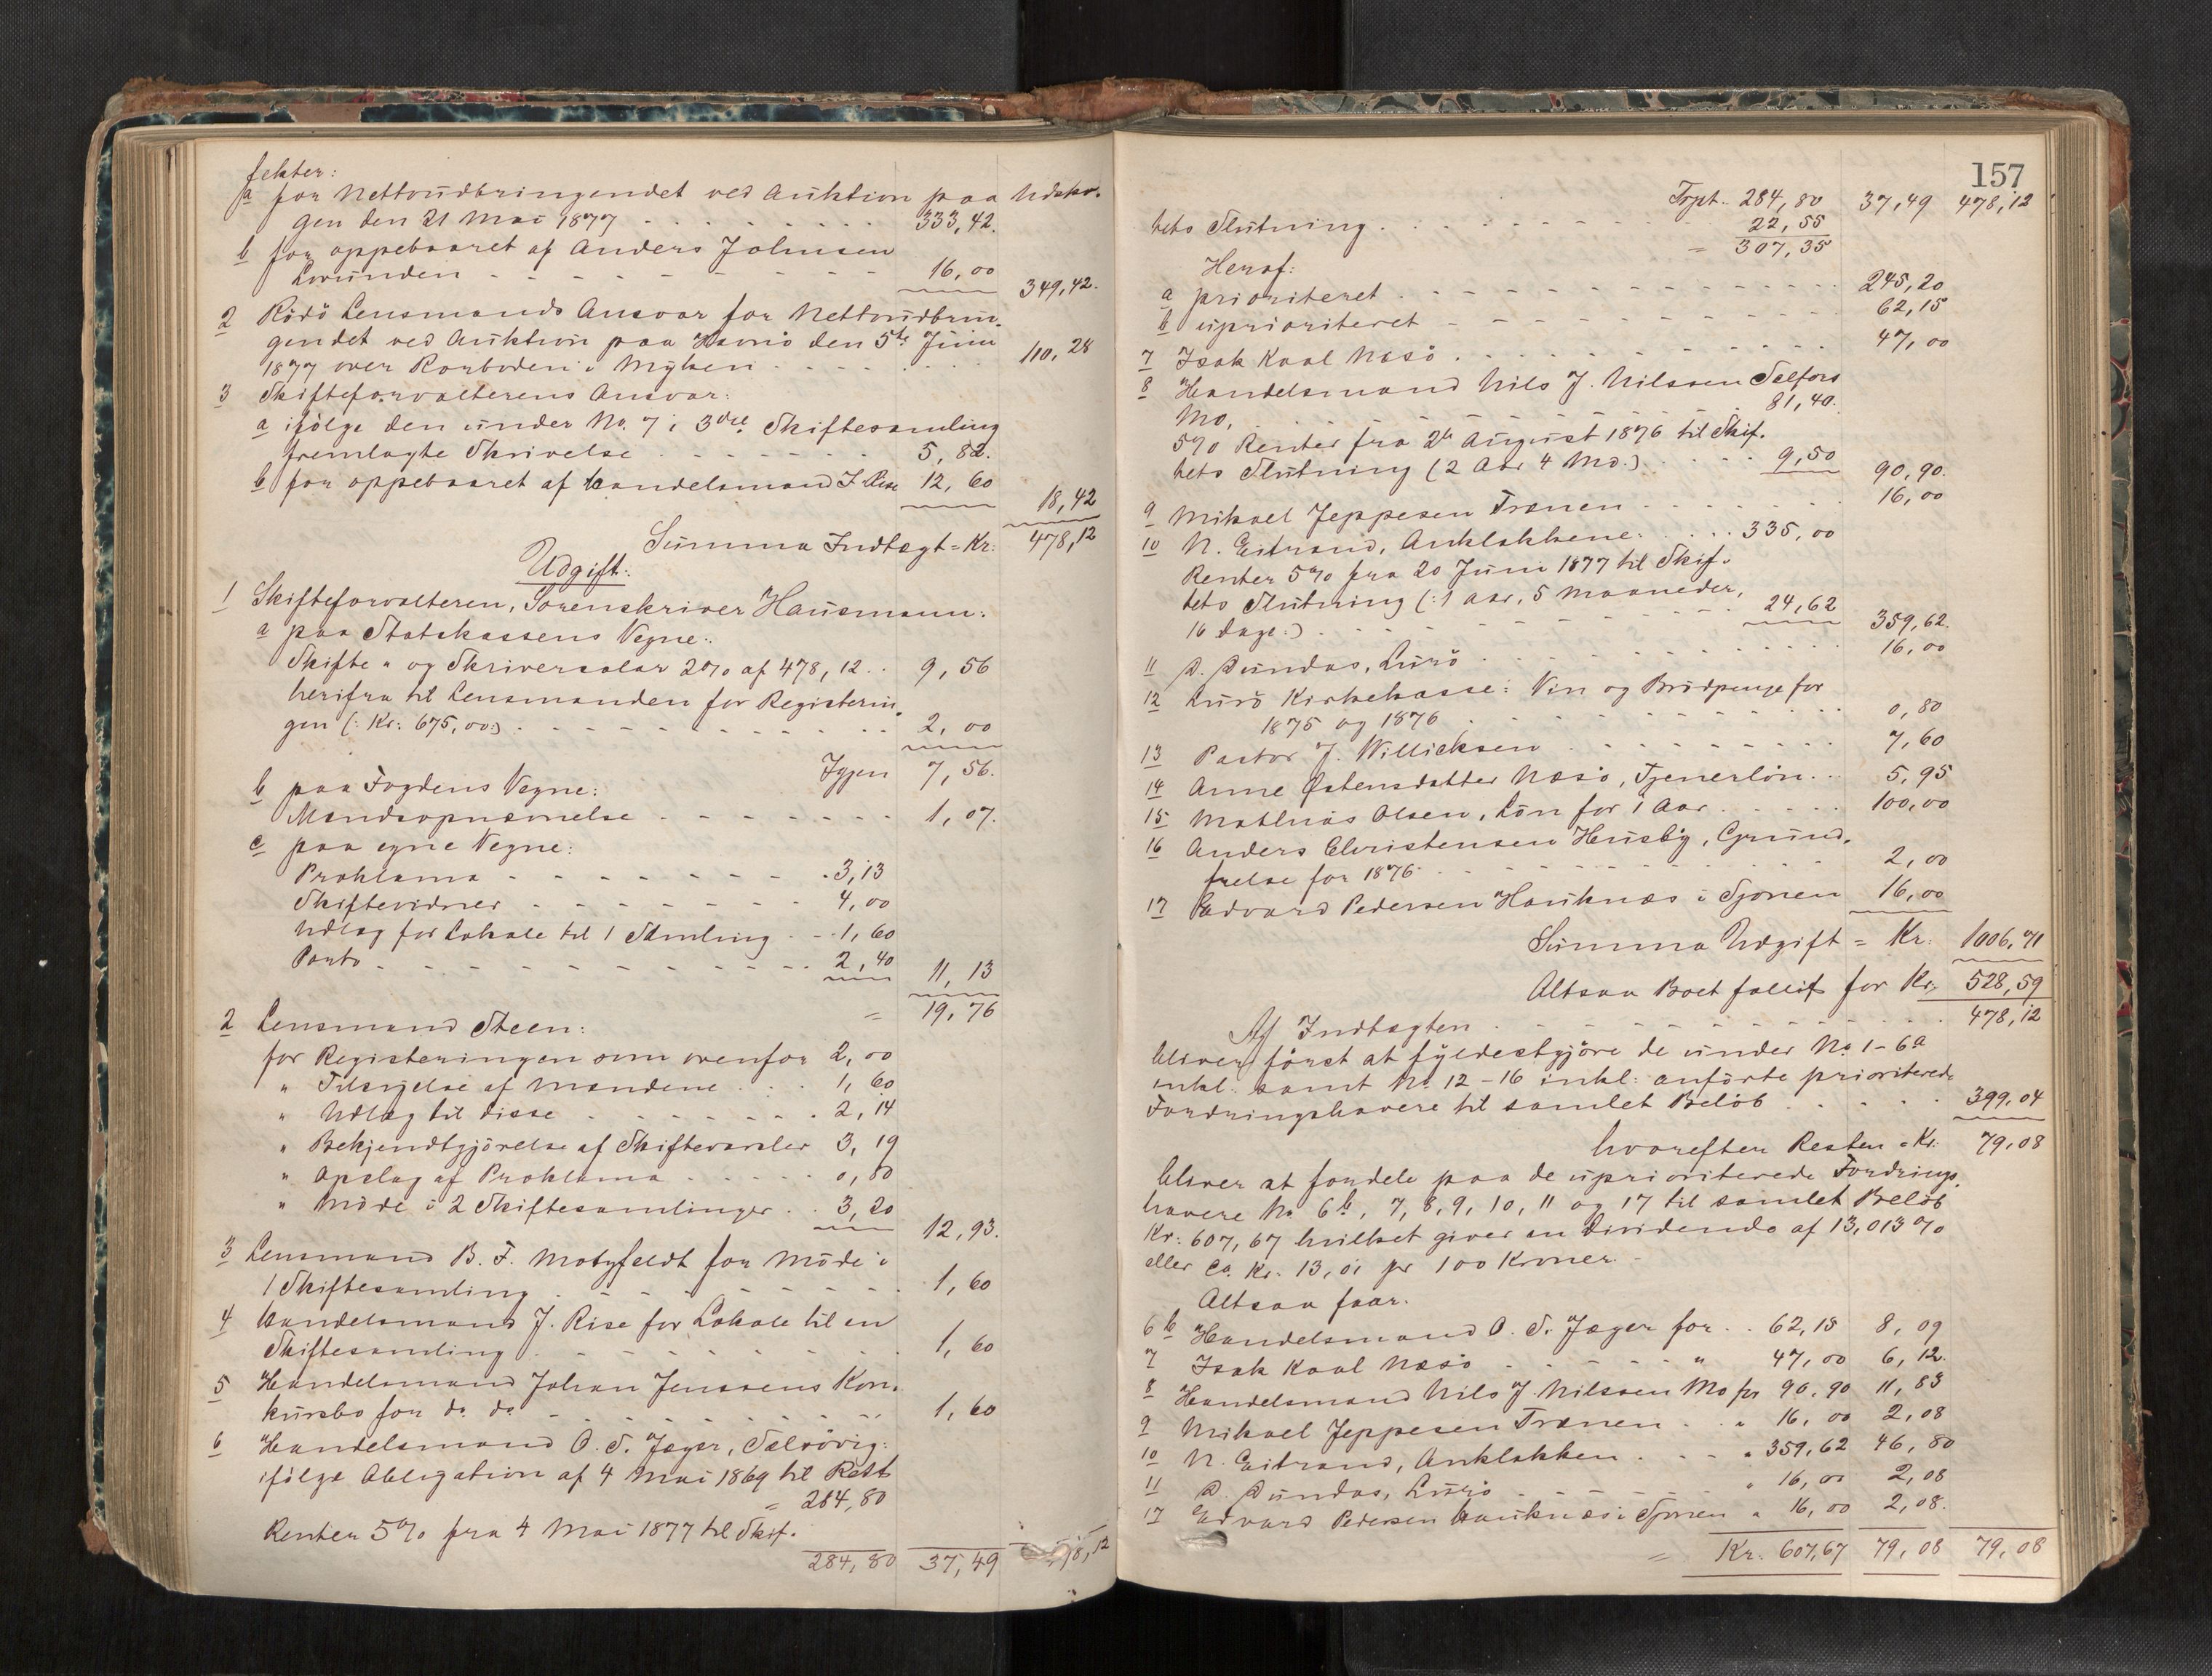 fekter:
a for Nettoudbringendet ved Auktion paa Udskv.
gen den 21 Mai 1877 . . . . . . . 333,42.
b for oppebaaret af Anders Johnsen
Lovunden - - - - - - - - - 16,00
349,42.
2 Rödö Lensmands Ansvar for Nettoudbrin-
gendet ved Auktion paa Havnö den 5te Juni
1877 over Rorboden i Myken . . . . . . . 110,28
3 Skifteforvalterens Ansvar:
a ifölge den under No. 7 i 3die Skiftesamling
fremlagte Skrivelse . . . . . . . 5,82.
b for oppebaaret af Handelsmand J. Rise 12,60
18,42
Summa Indtægt = Kr: 478,12
Udgift:
1 Skifteforvalteren, Sorenskriver Hausmann:
a paa Statskassens Vegne:
Skifte- og Skriversalar 2% af 478,12 . . 9,56
herifra til Lensmanden for Registerin-
gen (: Kr: 675,00:) . . . . . . . . 2,00
Igjen 7,56.
b paa Fogdens Vegne:
Mændsopnævnelse . . . . . . . 1,07.
c paa egne Vegne:
Proklama - - - - - - - - 3,13
Skiftevidner - - - - - - - 4,00
Udlæg for Lokale til 1 Samling - - 1,60
Porto - - - - - - - - - - - 2,40
11,13
= 19,76
2 Lensmand Steen:
for Registeringen som ovenfor 2,00
" Tilsigelse af Mændene . . . 1,60
" Udlæg til disse . . . . . . . 2,14
" Bekjendtgjörelse af Skiftevarsler 3,19
" Opslag af Proklama . . . . . 0,80
" Möde i 2 Skiftesamlinger . . 3,20
12,93.
3 Lensmand B. F. Motzfeldt for Möde i
1 Skiftesamling . . . . . . . . . 1,60
4 Handelsmand J. Rise for Lokale til en
Skiftesamling . . . . . . . . . 1,60
5 Handelsmand Johan Jenssens Kon-
kursbo for do do - - - - - - - - 1,60
6 Handelsmand O. S. Jæger, Selsövig:
ifölge Obligation af 4 Mai 1869 til Rest
= 284,80
Renter 5% fra 4 Mai 1877 til Skif-
284,80 37,49 478,12
157
Trpt. 284,80 37,49 478,12
tets Slutning . . . . . . . 22,55
= 307,35
Heraf:
a prioriteret . . . . . . . . . . . 245,20
b uprioriteret - - - - - - - - - 62,15
7 Isak Kaal Næsö . . . . . . . . . 47,00
8 Handelsmand Nils J. Nilssen Selfors
Mo, . . . . . . . . . 81,40.
5% Renter fra 2den August 1876 til Skif-
tets Slutning (2 Aar 4 Md.) . . . . 9,50
90,90.
9 Mikael Jeppesen Trænen . . . . . . . 16,00
10 N. Eitrand, Anklakkene . . . . 335,00
Renter 5% fra 20 Juni 1877 til Skif-
tets Slutning (: 1 Aar, 5 Maaneder,
16 Dage:) . . . . . . . . . . 24,62
359,62.
11 D. Dundas, Lurö . . . . . . . . . 16,00
12 Lurö Kirkekasse: Vin og Brödpenge for
1875 og 1876 . . . . . . . . . . . 0,80
13 Pastor J. Willicksen . . . . . . . . . 7,60
14 Anne Östensdatter Næsö, Tjenerlön . . 5,95
15 Mathias Olsen, Lön for 1 Aar . . . . . 100,00
16 Anders Christensen Husby, Grund-
frelse for 1876 . . . . . . . . . . 2,00
17 Edvard Pedersen Hauknæs i Sjonen 16,00
Summa Udgift = Kr: 1006,71
Altsaa Boet fallit for Kr: 528,59
Af Indtægten . . . . . . . . . . . 478,12
bliver först at fyldestgjöre de under No 1 - 6a
inkl: samt No 12 - 16 inkl: anförte prioriterede
Fordringshavere til samlet Belöb . . . . . 399,04
hvorefter Resten = Kr: 79,08
bliver at fordele paa de uprioriterede Fordrings-
havere No 6b, 7, 8, 9, 10, 11 og 17 til samlet Belöb
Kr: 607,67 hvilket giver en Dividende af 13,013%
eller Ca. Kr. 13,01 pr 100 Kroner. -
Altsaa faar:
6b Handelsmand O. S. Jæger for . . 62,15 8,09
7 Isak Kaal Næsö - - - - - " 47,00 6,12.
8 Handelsmand Nils J. Nilssen Mo for 90,90 11,83
9 Mikael Jeppesen Trænen . . " 16,00 2,08
10 N. Eitrand, Anklakken . . . " 359,62 46,80
11 D. Dundas, Lurö - - - - - " 16,00 2,08
17 Edvard Pedersen Hauknæs i Sjonen " 16,00 2,08.
= Kr. 607,67 79,08 79,08